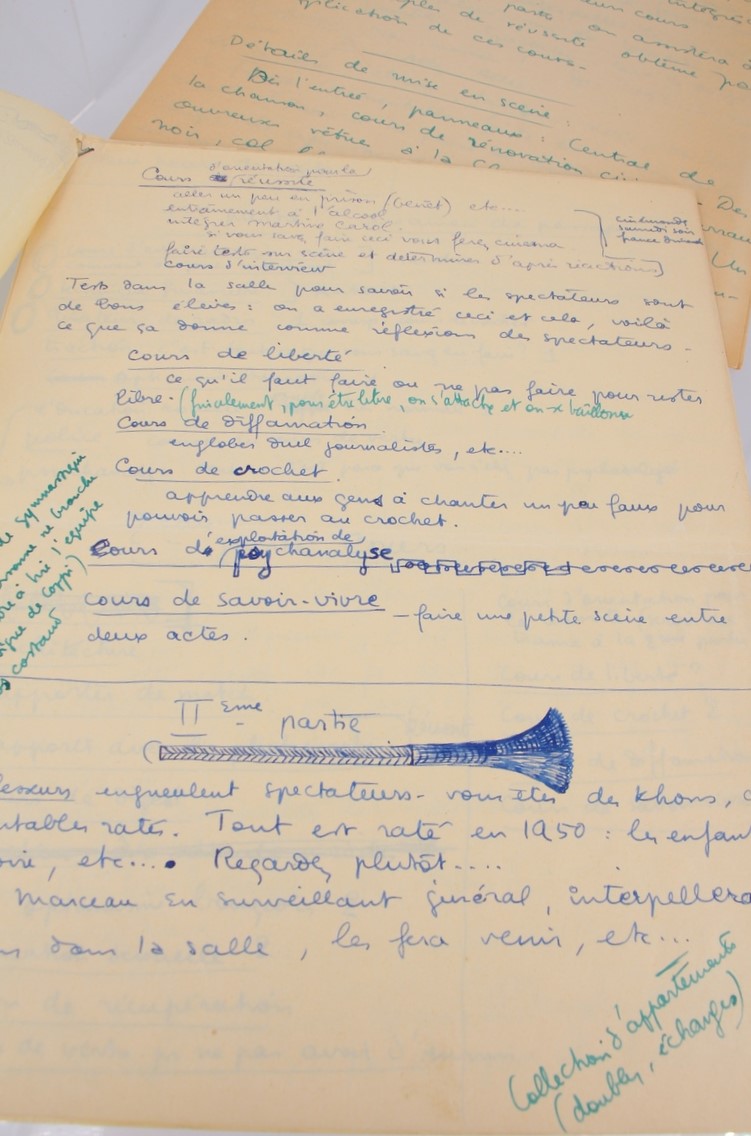 parte on assistera à
de réussite obtenue
application de ces cours.
Détails de mise en scène :
Dès l'entrée, panneaux : Central de
la chanson, cours de rénovation
ouvreuses vêtues à la
noir, col
d'orientation pour la
Cours réussite
aller un peu en prison (benêt) etc....
entraînement à l'alcool
intégrer Martine Carol.
si vous savez faire ceci vous ferez cinéma
faire tests sur scène et déterminer d'après réactions
cours d'interview
samedi soir
Tests dans la salle pour savoir si les spectateurs sont
de bons élèves : on a enregistré ceci et cela, voilà
ce que ça donne comme réflexions des spectateurs -
Cours de liberté
ce qu'il faut faire ou ne pas faire pour rester
libre. (finalement, pour être libre, on s'attache et on se bâillonne
Cours de diffamation
englober duel journalistes, etc....
Cours de crochet
apprendre aux gens à chanter un peu faux pour
pouvoir passer au crochet.
Cours d'exploitation de psychanalyse
cours de savoir-vivre – faire une petite scène entre
deux actes.
de gymnastique
personne ne bronche
l'équipe
de Coppi)
costaud
IIème partie
engueulent spectateurs - vous êtes des khons,
ratés. Tout est raté en 1950 : les enfants
etc.... Regardez plutôt....
Marceau en surveillant général, interpellera
dans la salle, les fera venir, etc...
Collection d'appartements
(doubles, échanges)